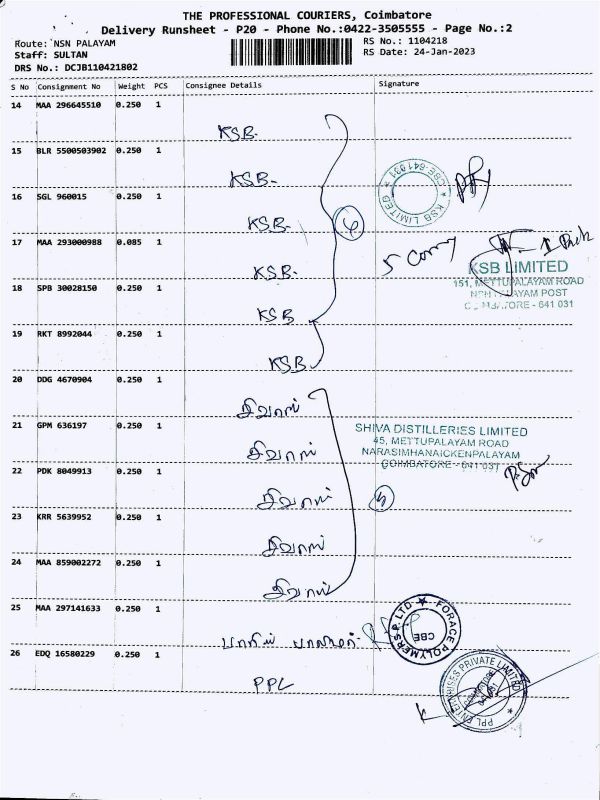 THE PROFESSIONAL COURIERS, Coimbatore
Delivery Runsheet - P20 - Phone No.:0422-3505555 - Page No.:2
Route: NSN PALAYAM
RS No.: 1104218
Staff: SULTAN
RS Date: 24-Jan-2023
DRS No.: DCJB110421802
S No Consignment No Weight PCS Consignee Details Signature
14 MAA 296645510 0.250 1
KSB.
15 BLR 5500503902 0.250 1
KSB.
CBE-641031 * KSB LIMITED *
16 SGL 960015 0.250 1
KSB.
6
17 MAA 293000988 0.085 1
5
KSB.
KSB LIMITED
151, METTUPALAYAM ROAD
NSN PALAYAM POST
COIMBATORE - 641 031
18 SPB 30028150 0.250 1
KSB
19 RKT 8992044 0.250 1
KSB
20 DDG 4670904 0.250 1
சிவாஸ்
21 GPM 636197 0.250 1
SHIVA DISTILLERIES LIMITED
45, METTUPALAYAM ROAD
NARASIMHANAICKENPALAYAM
COIMBATORE - 641 031
சிவாஸ்
22 PDK 8049913 0.250 1
சிவாஸ்
5
23 KRR 5639952 0.250 1
சிவாஸ்
24 MAA 859002272 0.250 1
சிவாஸ்
25 MAA 297141633 0.250 1
FORACE POLYMERS P LTD ★
CBE
26 EDQ 16580229 0.250 1
PPL
PPL ENTERPRISES PRIVATE LIMITED ★